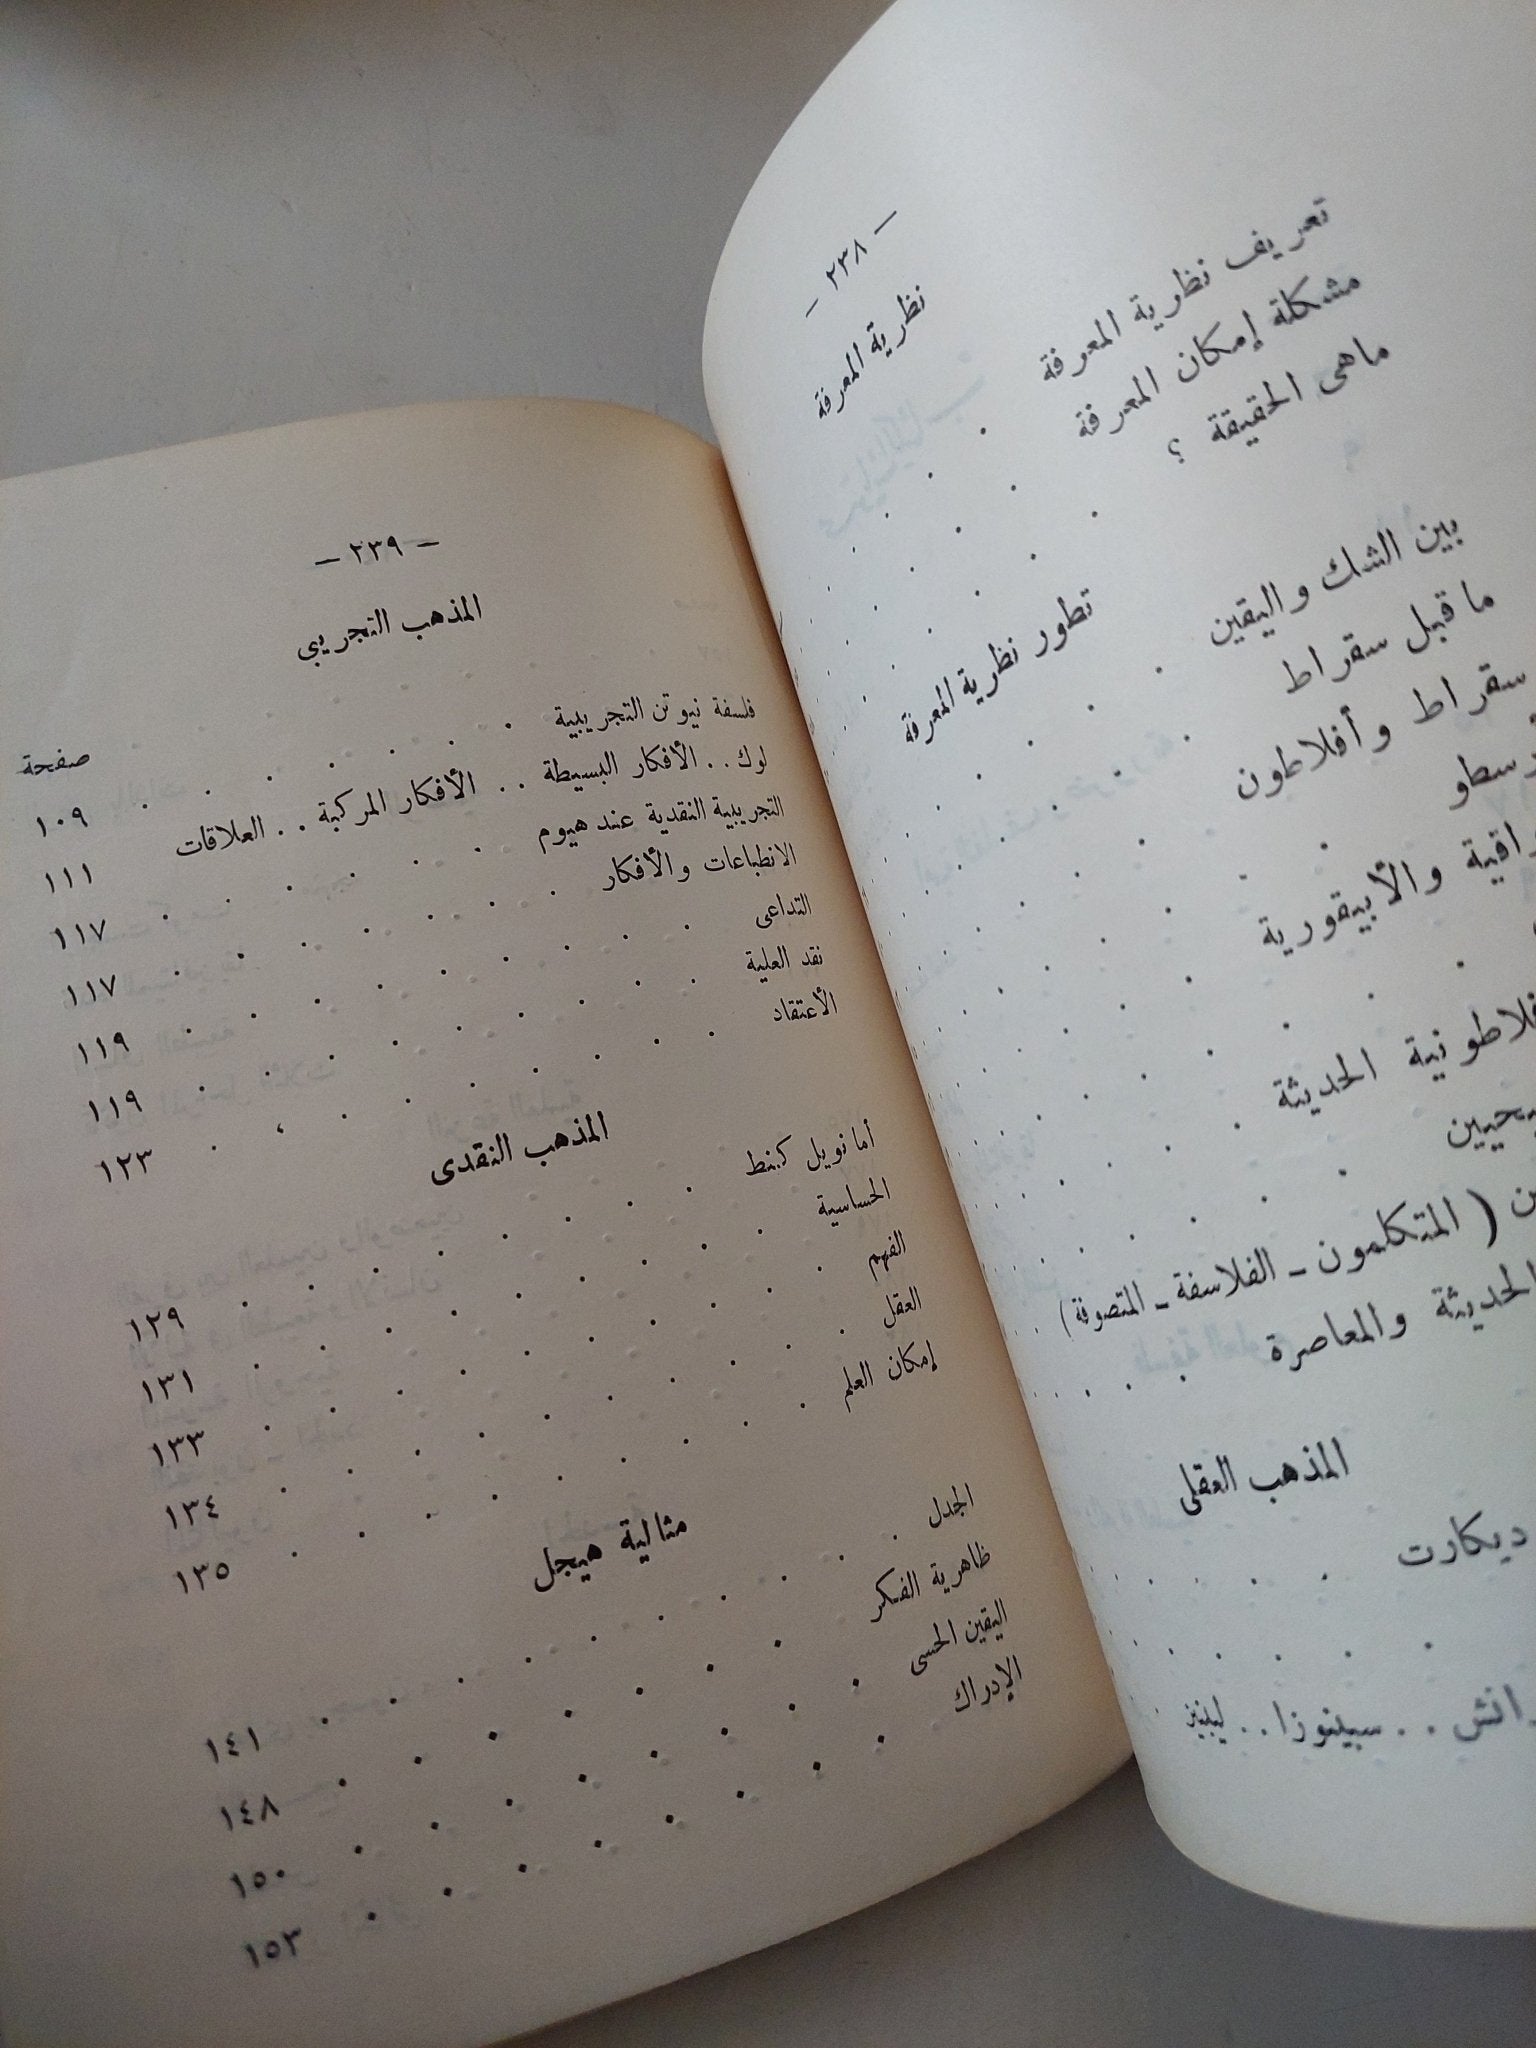 — ٢٣٨ —
نظرية المعرفة
تعريف نظرية المعرفة
مشكلة إمكان المعرفة
ماهى الحقيقة ؟
بين الشك واليقين
تطور نظرية المعرفة
ما قبل سقراط
سقراط وأفلاطون
والأبيقورية
الحديثة
( المتكلمون – الفلاسفة – المتصوفة )
الحديثة والمعاصرة
المذهب العقلى
ديكارت
. . سبينوزا . . ليبنيز
— ٢٣٩ —
المذهب التجريبى
صفحة
فلسفة نيوتن التجريبية ١٠٩
لوك . . الأفكار البسيطة . . الأفكار المركبة . . العلاقات ١١١
التجريبية النقدية عند هيوم ١١٧
الانطباعات والأفكار ١١٧
التداعى ١١٩
نقد العلية ١١٩
الأعتقاد ١٢٣
المذهب النقدى
أمانويل كبنط ١٢٩
الحساسية ١٣١
الفهم ١٣٣
العقل ١٣٤
إمكان العلم ١٣٥
مثالية هيجل
الجدل ١٤١
ظاهرية الفكر ١٤٨
اليقين الحسى ١٥٠
الإدراك ١٥٣